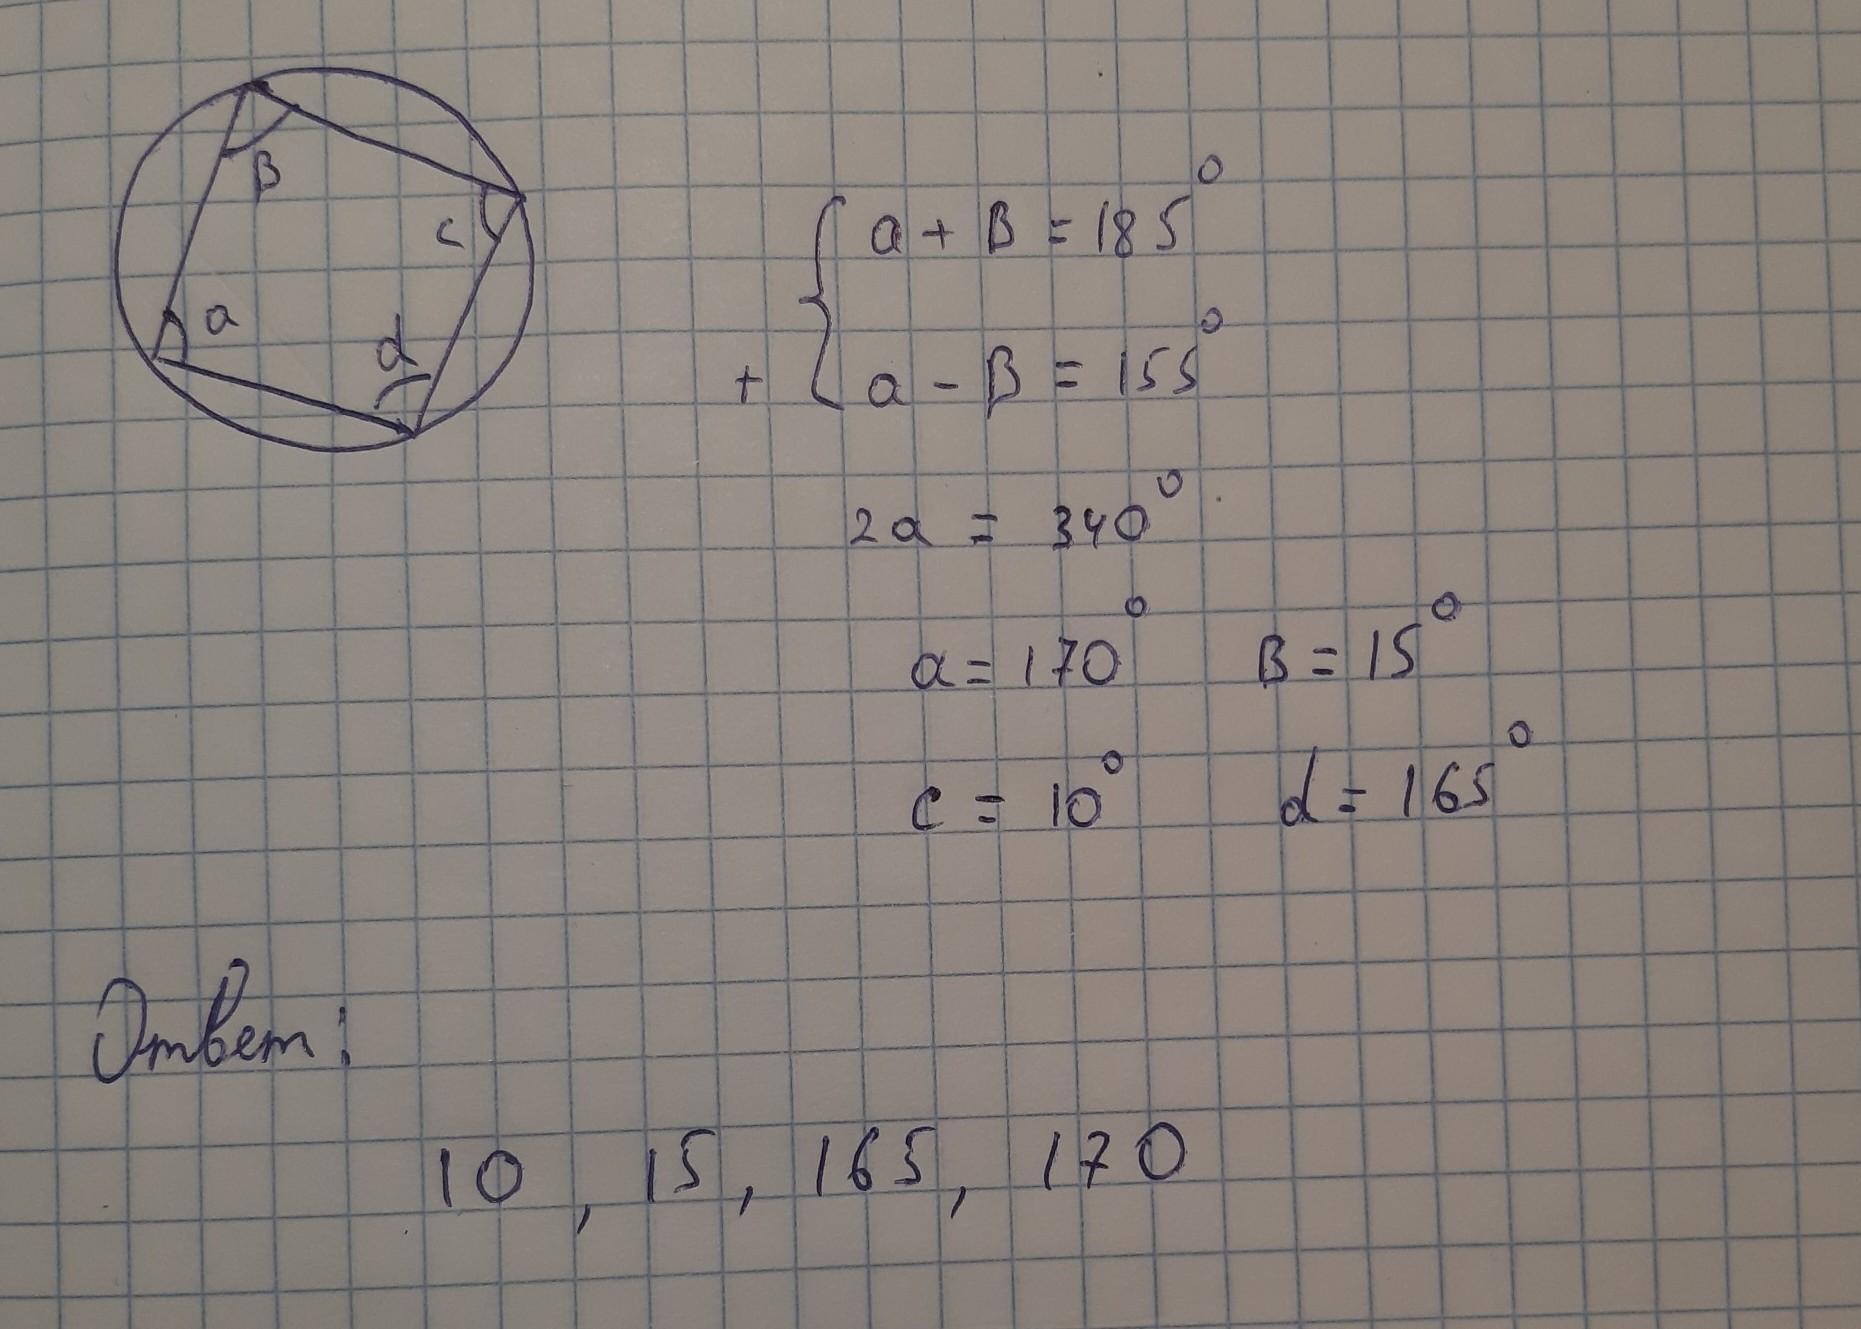 B
c
a
d
a + B = 185°
+ a - B = 155°
2a = 340°
a = 170° B = 15°
c = 10° d = 165°
Ответ:
10, 15, 165, 170